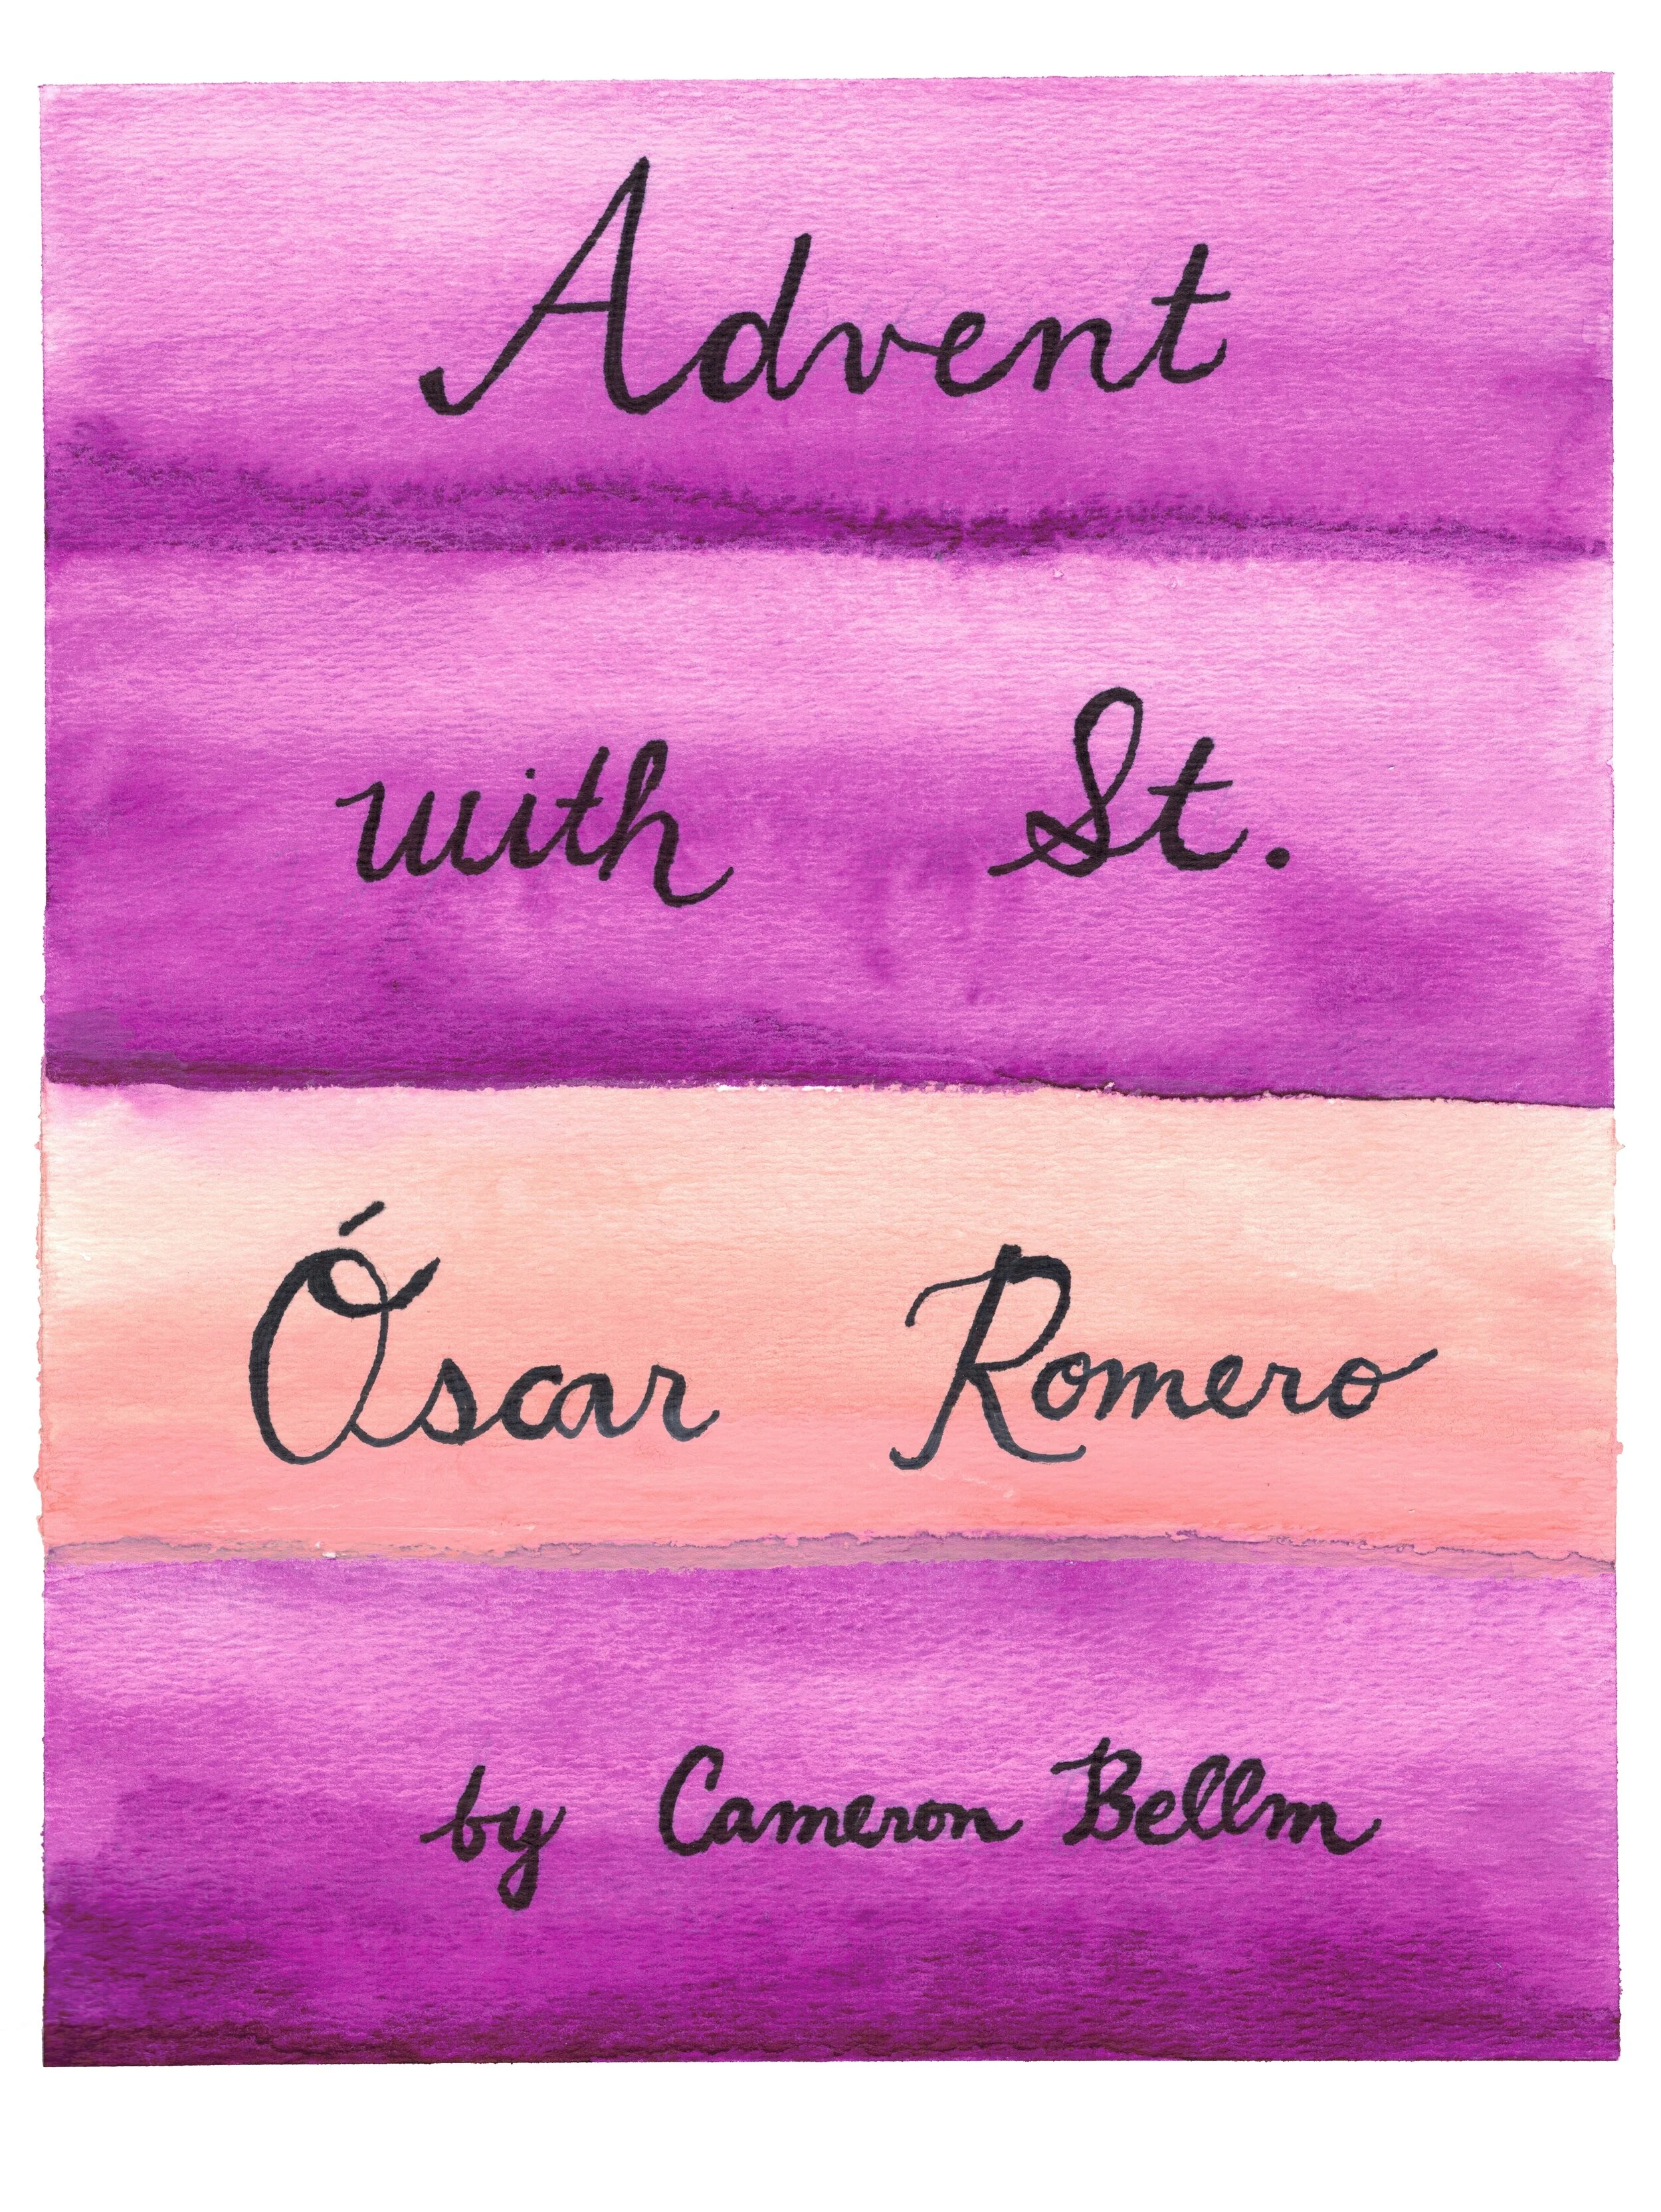 Advent
with St.
Óscar Romero
by Cameron Bellm